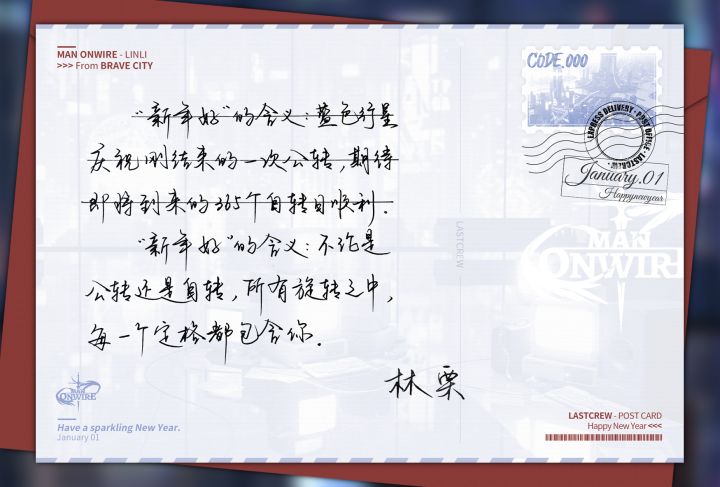 MAN ONWIRE - LINLI
>>> From BRAVE CITY
CODE.000
EXPRESS DELIVERY · POST OFFICE · LASTCREW ·
January.01
Happynewyear
"新年好"的含义:蓝色行星
庆祝刚结束的一次公转,期待
即将到来的365个自转日顺利.
"新年好"的含义:不论是
公转还是自转,所有旋转之中,
每一个定格都包含你.
林栗
LASTCREW
MAN
ONWIRE
MAN
ONWIRE
Have a sparkling New Year.
January 01
LASTCREW - POST CARD
Happy New Year <<<